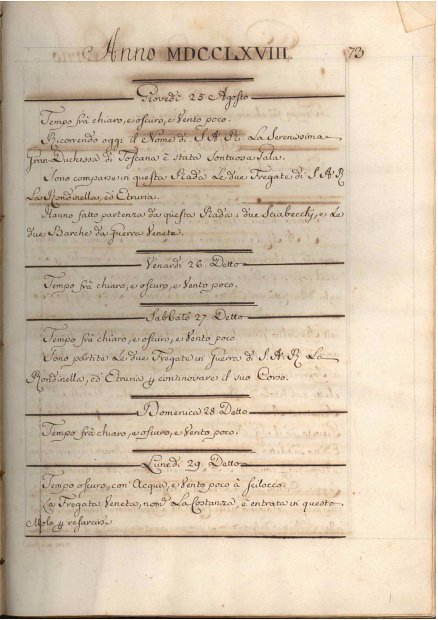 Anno MDCCLXVIII. 73
Giovedi 25 Agosto
Tempo frà chiaro, e oscuro, e Vento poco.
Ricorrendo oggi il Nome di S. A. R. La Serenissima
Gran Duchessa di Toscana è stata sontuosa Gala.
Sono comparse in questa Rada Le due Fregate di S. A. R.
La Rondinella, ed Etruria.
Hanno fatto partenza da questa Rada i due Sciabecchj, e Le
due Barche da Guerra Venete.
Venardi 26. Detto
Tempo frà chiaro, e oscuro, e Vento poco.
Sabbato 27. Detto
Tempo frà chiaro, e oscuro, e Vento poco
Sono partite Le due Fregate in Guerra di S. A. R. La
Rondinella, ed Etruria p continovare il suo Corso.
Domenica 28 Detto
Tempo frà chiaro, e oscuro, e Vento poco.
Lunedi 29. Detto
Tempo oscuro, con Acqua, e Vento poco à Scilocco.
La Fregata Veneta, nom.a La Costanza, è entrata in questo
Molo p resarcirsi